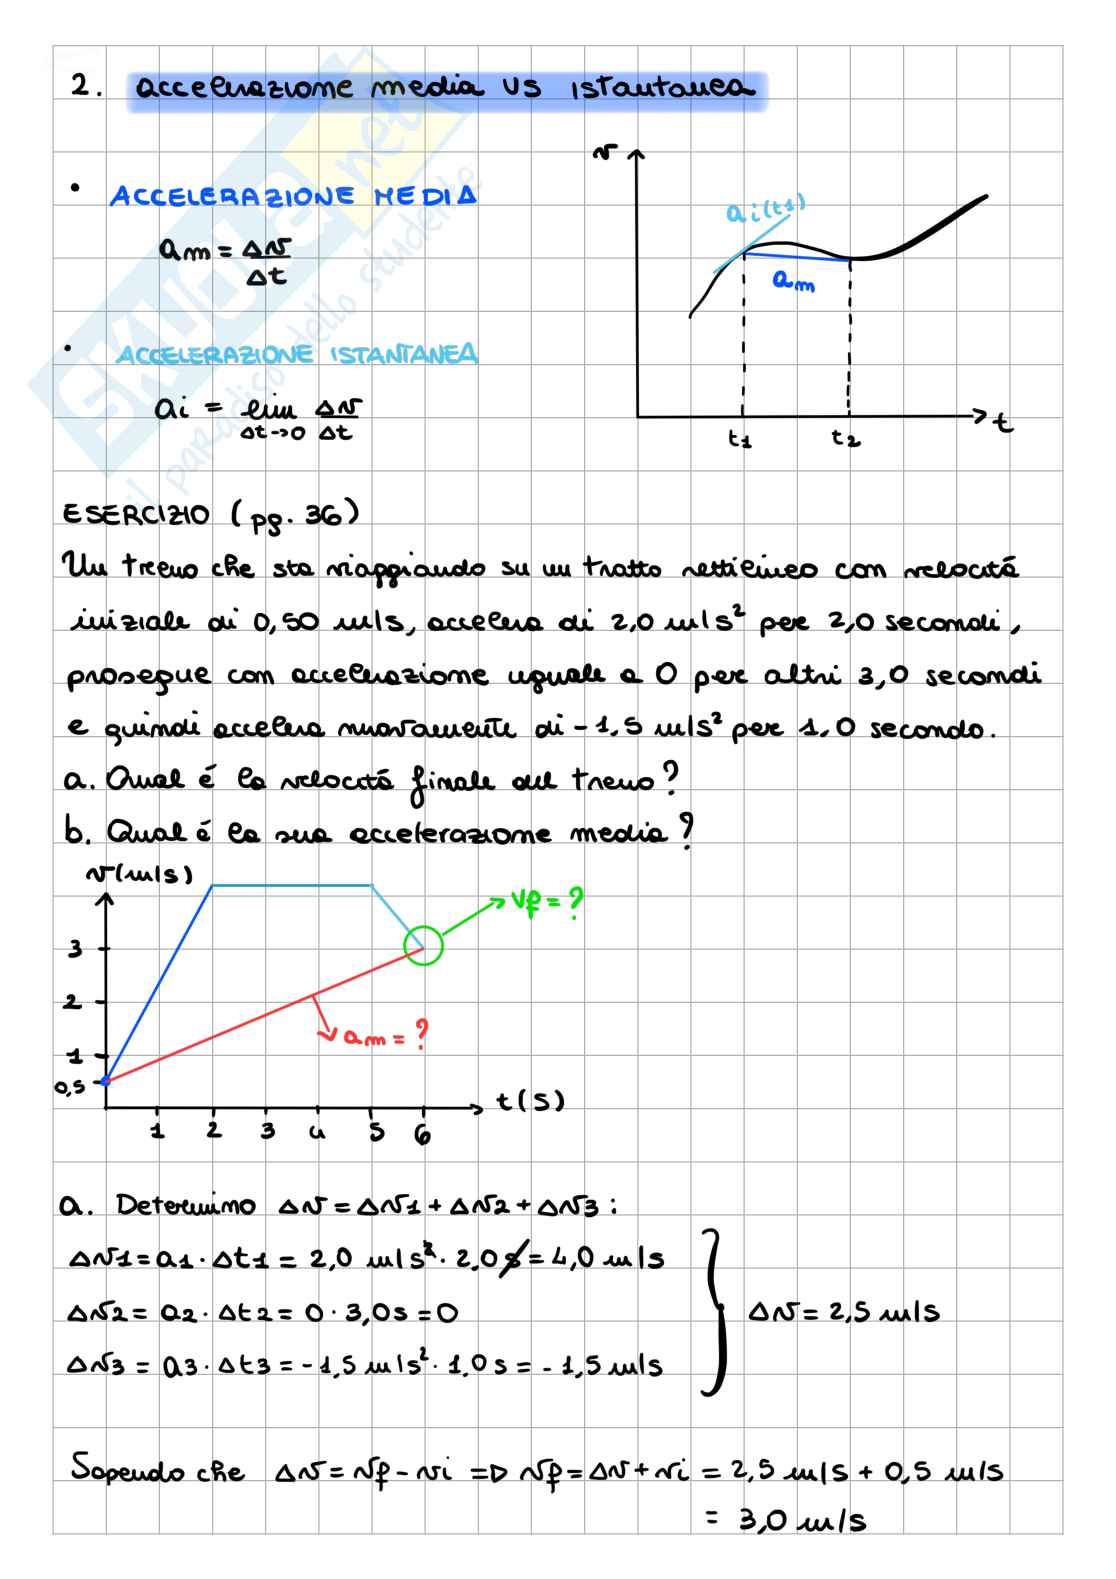 2. accelerazione media vs istantanea
• ACCELERAZIONE MEDIA
am = Δv/Δt
• ACCELERAZIONE ISTANTANEA
ai = lim Δt→0 Δv/Δt
v
ai(t1)
am
t1 t2 t
SKUOLA.net
il paradiso dello studente
ESERCIZIO (pg. 36)
Un treno che sta viaggiando su un tratto rettilineo con velocitá
iniziale di 0,50 m/s, accelera di 2,0 m/s² per 2,0 secondi,
prosegue con accelerazione uguale a 0 per altri 3,0 secondi
e quindi accelera nuovamente di -1,5 m/s² per 1,0 secondo.
a. Qual é la velocitá finale del treno?
b. Qual é la sua accelerazione media?
v(m/s)
3
2
1
0,5
vf = ?
am = ?
t(s)
1 2 3 4 5 6
a. Determino Δv = Δv1 + Δv2 + Δv3 :
Δv1 = a1 · Δt1 = 2,0 m/s² · 2,0 s = 4,0 m/s
Δv2 = a2 · Δt2 = 0 · 3,0 s = 0
Δv3 = a3 · Δt3 = -1,5 m/s² · 1,0 s = -1,5 m/s
Δv = 2,5 m/s
Sapendo che Δv = vf - vi => vf = Δv + vi = 2,5 m/s + 0,5 m/s
= 3,0 m/s